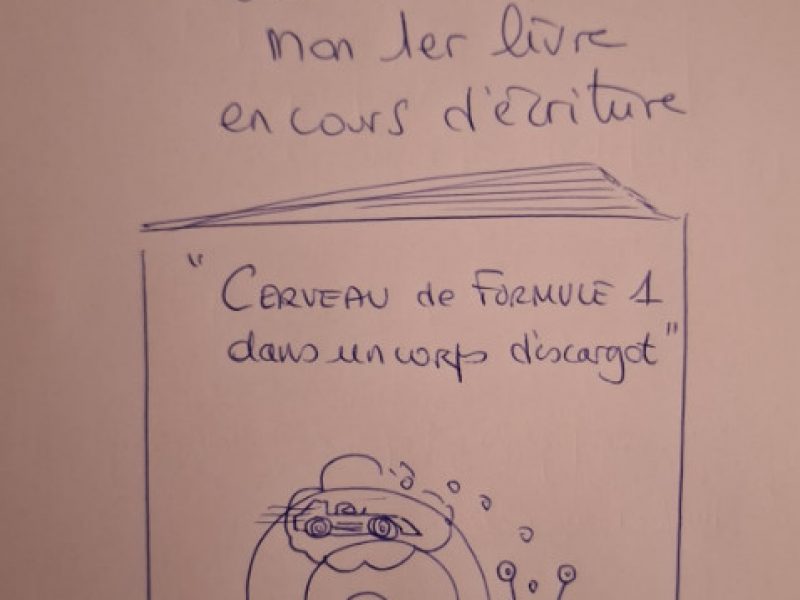 mon 1er livre
en cours d'écriture
"CERVEAU de FORMULE 1
dans un corps d'escargot"